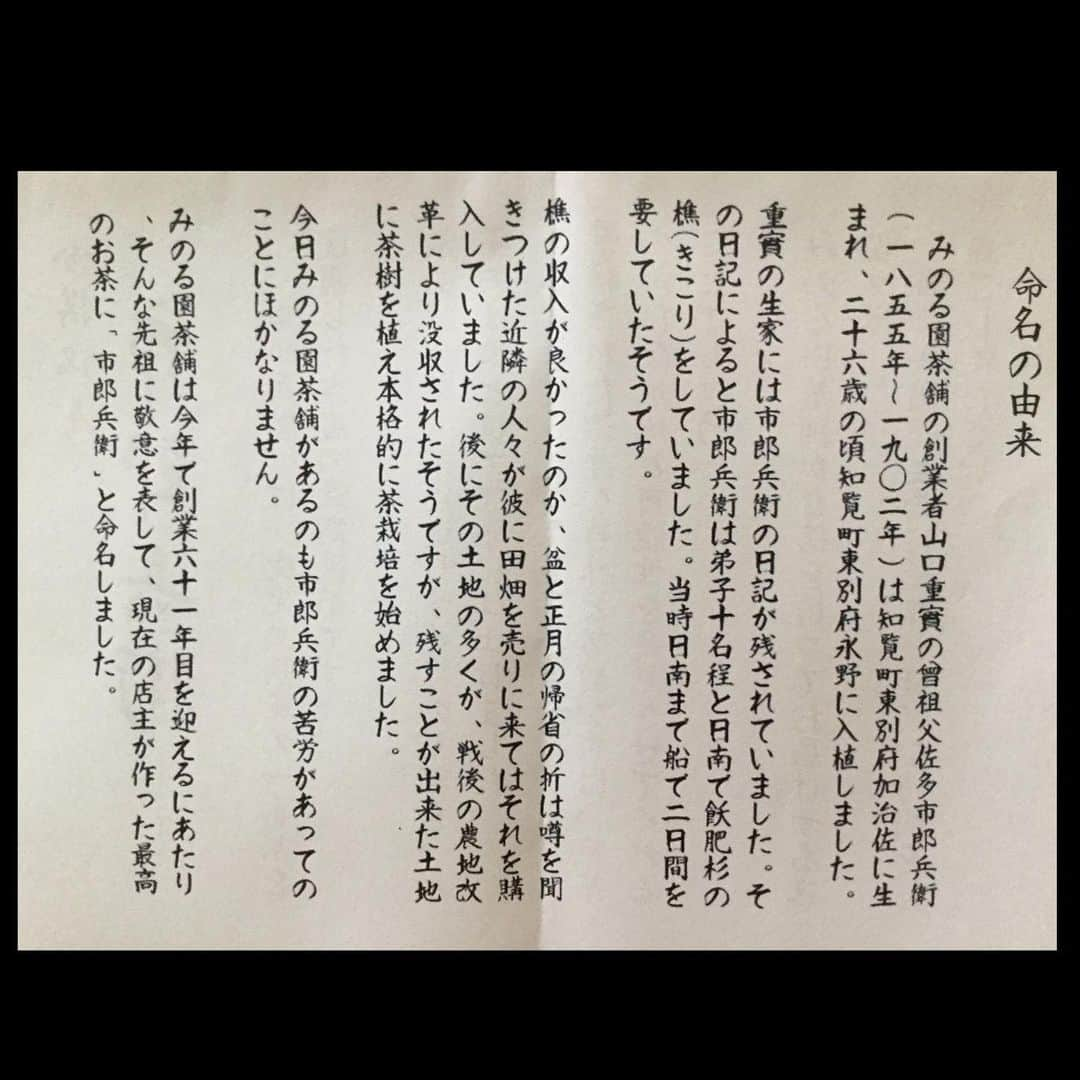 命名の由来
みのる園茶舗の創業者山口重實の曾祖父佐多市郎兵衛
(一八五五年~一九〇二年)は知覧町東別府加治佐に生
まれ、二十六歳の頃知覧町東別府永野に入植しました。
重實の生家には市郎兵衛の日記が残されていました。そ
の日記によると市郎兵衛は弟子十名程と日南で飫肥杉の
樵(きこり)をしていました。当時日南まで船で二日間を
要していたそうです。
樵の収入が良かったのか、盆と正月の帰省の折は噂を聞
きつけた近隣の人々が彼に田畑を売りに来てはそれを購
入していました。後にその土地の多くが、戦後の農地改
革により没収されたそうですが、残すことが出来た土地
に茶樹を植え本格的に茶栽培を始めました。
今日みのる園茶舗があるのも市郎兵衛の苦労があっての
ことにほかなりません。
みのる園茶舗は今年で創業六十一年目を迎えるにあたり
、そんな先祖に敬意を表して、現在の店主が作った最高
のお茶に「市郎兵衛」と命名しました。